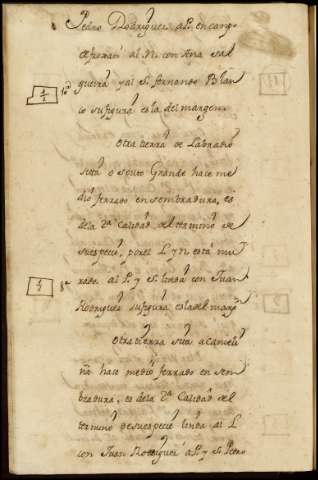 Pedro Rodriguez al P. en camp
al N. con Ana Sal
gueira y al S. fernando Blan
co su figura es la del margen.
Otra tierra de Labradio
sita o Souto Grande hace me
dio ferrado en sembradura, es
de la 2ª Calidad del termino de
su especie, por el L. y N. está mu
rada al P. y S. linda con Juan
Rodriguez su figura es la del marg
Otra tierra sita a Cameli
ña hace medio ferrado en sem
bradura, es de la 2ª Calidad del
termino de su especie linda al L.
con Juan Rodriguez al P. y S. Pedro